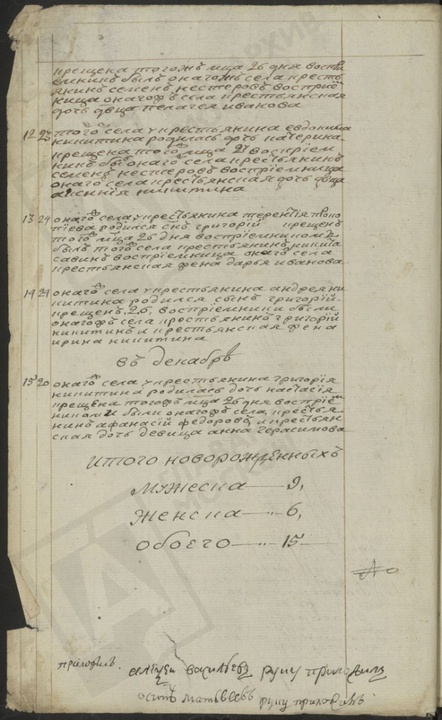 крещена тогожъ мца 26 дня воспри
емникъ былъ онагожъ села кресть
янинъ семенъ нестеровъ восприе
мница онагожъ села крестьянская
дочь двца пелагея иванова
12 23 того села у крестьянина евдокима
никитина родилась дочь катерина
крещена того мца 27 восприем
никъ былъ онаго села крестьянинъ
семенъ нестеровъ восприемница
онаго села крестьянская дочь двца
никитина
13 24 онаго села у крестьянина терентія
родился снъ григорий крещенъ
того мца 26 дня восприемникомъ
былъ того села крестьянинъ никита
савинъ восприемница онаго села
крестьянская жена дарья иванова
14 24 онаго села у крестьянина андрея ни
китина родился сынъ григорий
крещенъ 26, восприемники были
онагожъ села крестьянинъ григорий
никитинъ и крестьянская жена
ирина никитина
въ декабрѣ
15 20 онаго села у крестьянина григория
никитина родилась дочь настасія
крещена тогожъ мца 26 дня восприе
никами были онагожъ села крестья
нинъ афанасій федоровъ и крестьян
ская дочь девица анна герасимова
итого новорожденныхъ
мужеска — 9,
женска — 6,
обоего — 15
приложилъ. васильевъ руку приложилъ
осипъ матвеевъ руку приложилъ